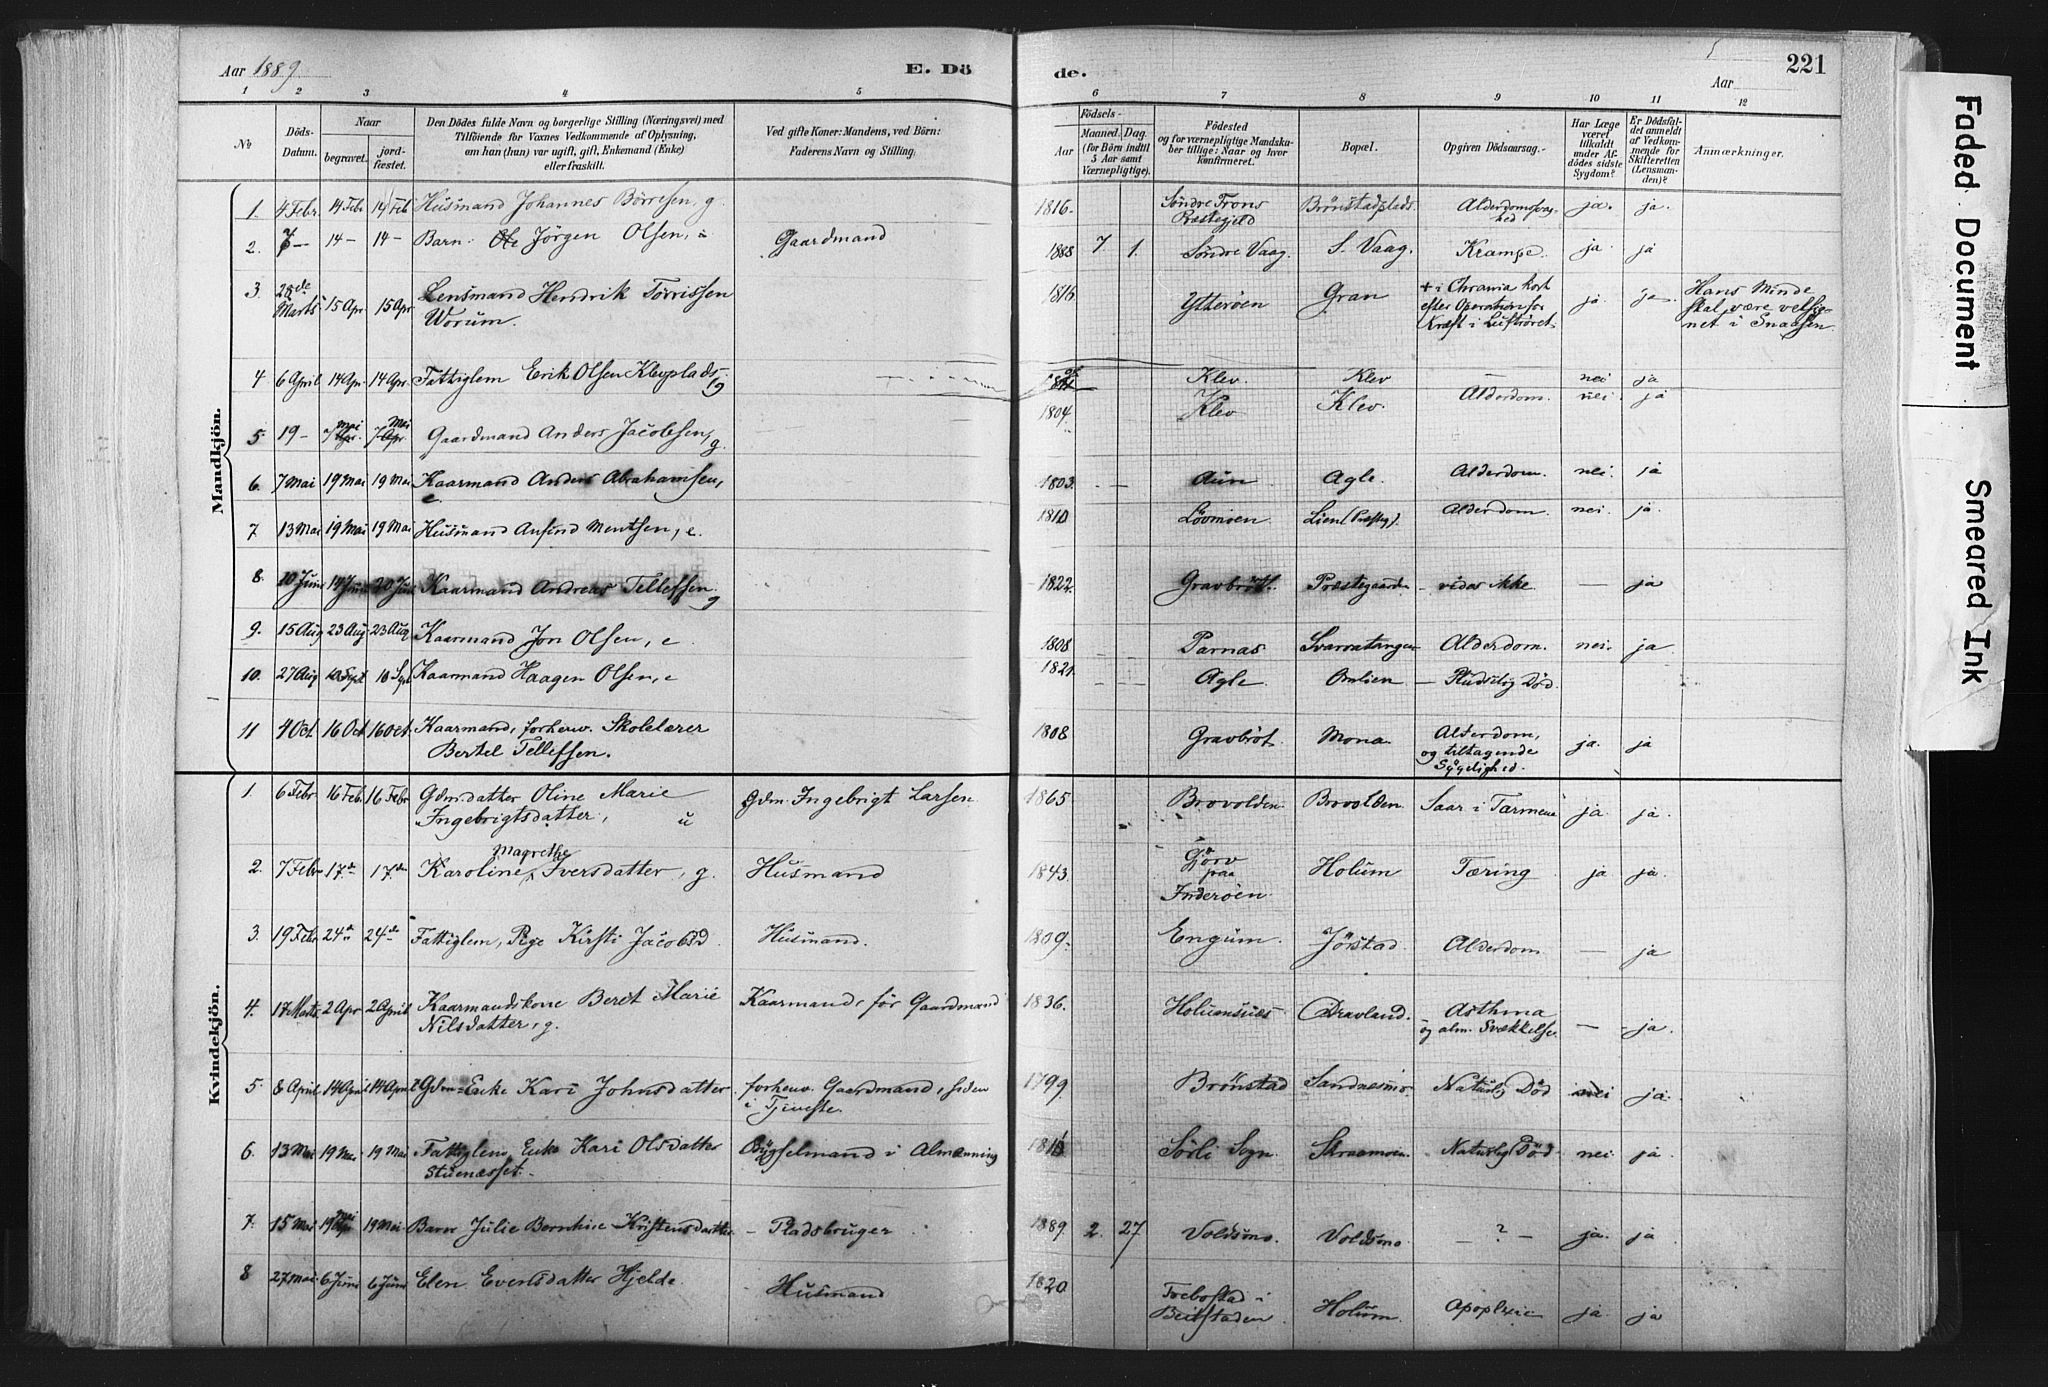 Aar 1889. E. Dö
de. Aar 221
1 2 3 4 5 6 7 8 9 10 11 12
№
Döds-Datum.
Naar
begravet.
jord-fæstet.
Den Dödes fulde Navn og borgerlige Stilling (Næringsvei) med
Tilföiende for Voxnes Vedkommende af Oplysning,
om han (hun) var ugift, gift, Enkemand (Enke)
eller fraskilt.
Ved gifte Koner: Mandens, ved Börn:
Faderens Navn og Stilling.
Födsels-
Aar
Maaned. Dag.
(for Börn indtil
5 Aar samt
Værnepligtige).
Födested
og for værnepligtige Mandska-
ber tillige: Naar og hvor
konfirmeret.
Bopæl.
Opgiven Dödsaarsag.
Har Læge
været
tilkaldt
under Af-
dödes sidste
Sygdom?
Er Dödsfal-
det anmeldt
af Vedkom-
mende for
Skifteretten
(Lensman-
den)?
Anmærkninger.
Mandkjön.
1. 4 Febr. 14 Febr 14 Feb Husmand Johannes Börresen, g. 1816. Söndre Trons Præstegjeld Brönstadplads. Alderdomssvaghed ja. ja.
2. 7 — 14 — 14 — Barn: Jörgen Olsen, Gaardmand 1888 7 1. Söndre Vaag. S. Vaag. Krampe. ja. ja
3. 28de Marts 15 Apr. 15 Apr Lensmand Hendrik Törrissen
Worum. 1816 Ytteröen Gran + i Chrania kort
efter Operation for
Kræft i Luftröret. ja ja Hans Minde
skal være velsig-
net i Snaasen.
4 6 April 14 Apr. 14 Apr. Fattiglem Erik Olsen Klevplads, g Klev. Klev — nei ja
1804. Klev Klev. Alderdom. nei. ja
5. 19 — 7 Mai 7 Mai Gaardmand Anders Jacobsen, g.
6. 7 Mai 19 Mai 19 Mai Kaarmand Anders Abrahamsen,
e. 1803. Aun Agle. Alderdom. nei. ja
7 13 Mai 19 Mai 19 Mai Husmand Anfind Mentsen, e. 1810 Lövmoen. Lien (Præsteg). Alderdom. nei. ja.
8. 10 Juni 14 Juni 20 Juni Kaarmand Andreas Tellefsen. g 1822. Gravbröt. Præstegaarden — vides ikke. — ja
9. 15 Aug 23 Aug 23 Aug Kaarmand Jon Olsen, e 1808 Parnas Svarvatangen Alderdom. nei. ja
10. 27 Aug 10 Sept 10 Sept Kaarmand Haagen Olsen, e 1821. Agle Omlien — Pludselig Död.
11 4 Oct. 16 Oct 16 Oct. Kaarmand, forhenv. Skolelærer
Bertel Tellefsen. 1808 Gravbröt. Mona. Alderdom,
og tiltagende
Sygelighed. ja. ja
Kvindekjön.
1. 6 Febr. 16 Feb. 16 Febr Gdm.datter Oline Marie
Ingebrigtsdatter, u Gdm. Ingebrigt Larsen 1865 Brovolden. Brovolden. Saar i Tarmene ja. ja.
2. 7 Febr 17de 17de Karoline Magrethe Iversdatter, g. Husmand 1843. Gjörv
paa
Inderöen. Holum Tæring ja ja.
3. 19 Febr 24de 24de Fattiglem, Pige Kirsti Jacobsd. Husmand. 1809. Engum. Jörstad. Alderdom — ja
4. 17 Marts 2 Apr 2 April Kaarmandskone Beret Marie
Nilsdatter, g. Kaarmand, för Gaardmand 1836. Holumsnæs Dravland. Asthma
og alm. Svækkelse. — ja.
5. 8 April 14 April 14 Apr. Gdm-Enke Kari Johnsdatter forhenv. Gaardmand, siden
i Tjeneste. 1799 Brönstad Sandnesmo. Naturlig Död nei ja.
6. 13 Mai 19 Mai 19 Mai Fattiglem Enke Kari Olsdatter
Stuenæsset. Bygselmand i Almænning 1816 Sörli Sogn Skraamoen. Naturlig Död. nei ja.
7. 15 Mai 19 Mai 19 Mai. Barn Julie Bernhine Kristensdatter. — Pladsbruger 1889. 2. 27 Voldsmo. Voldsmo — ? — ja. ja.
8 27 Mai. 6 Juni 6 Juni Elen Evertsdatter Hjelde Husmand 1820 Trebostad i
Beitstaden Holum. Apoplexie ja ja
Faded Document
Smeared Ink